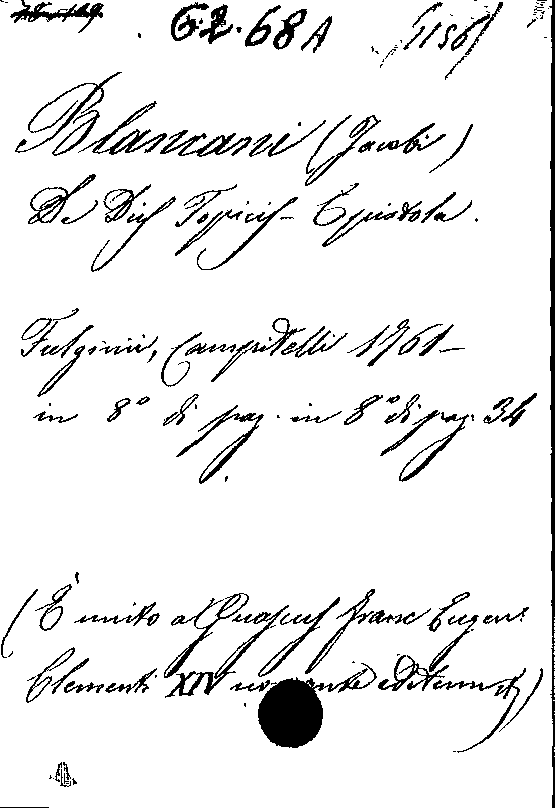 G.2.68A (1156)
Blancani (Jacobi)
De Diis Topicis - Epistola.
Fulginii, Campitelli 1761 -
in 8° di pag. in 8° di pag. 34
(È unito al Guascus Franc Eugen:
Clementi XIV)